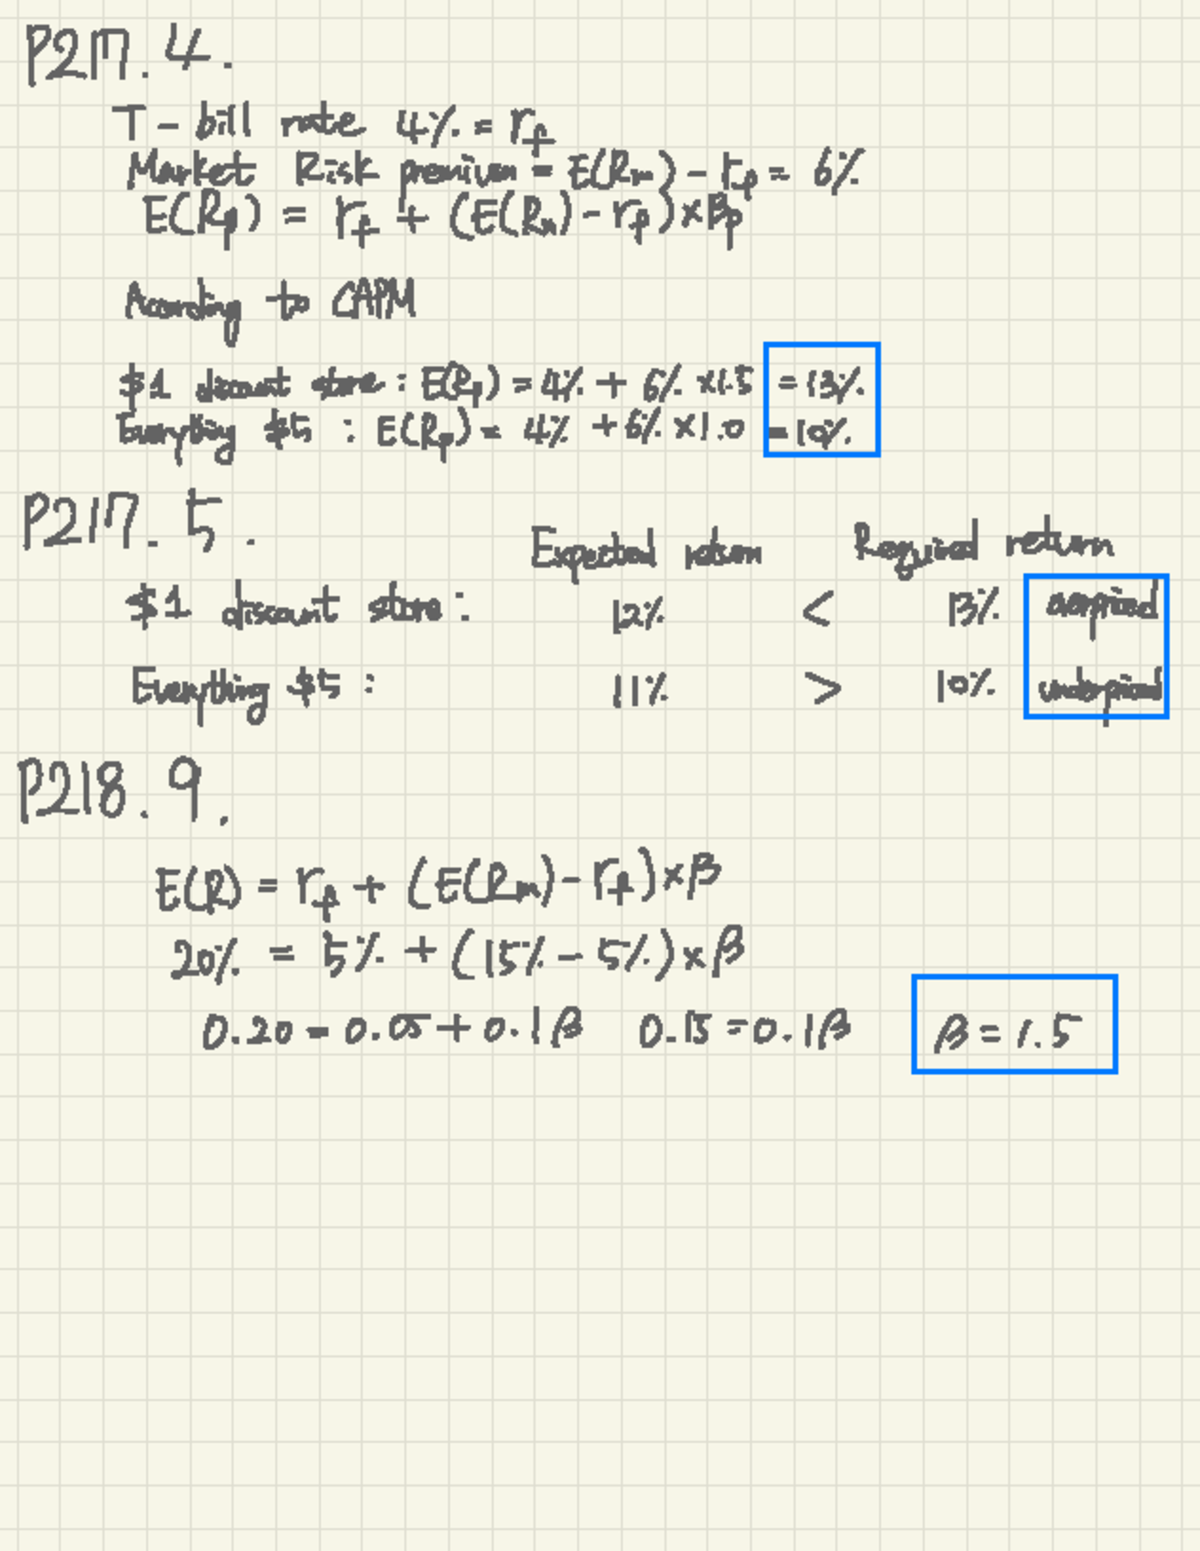 P217.4.
T-bill rate 4% = rf
Market Risk premium = E(Rm) - rf = 6%
E(Rp) = rf + (E(Rm) - rf) × βp
According to CAPM
$1 discount store : E(Rp) = 4% + 6% × 1.5 = 13%.
Everything $5 : E(Rp) = 4% + 6% × 1.0 = 10%.
P217.5.
Expected return Required return
$1 discount store : 12% < 13% overpriced
Everything $5 : 11% > 10% underpriced
P218.9.
E(R) = rf + (E(Rm) - rf) × β
20% = 5% + (15% - 5%) × β
0.20 = 0.05 + 0.1β 0.15 = 0.1β β = 1.5